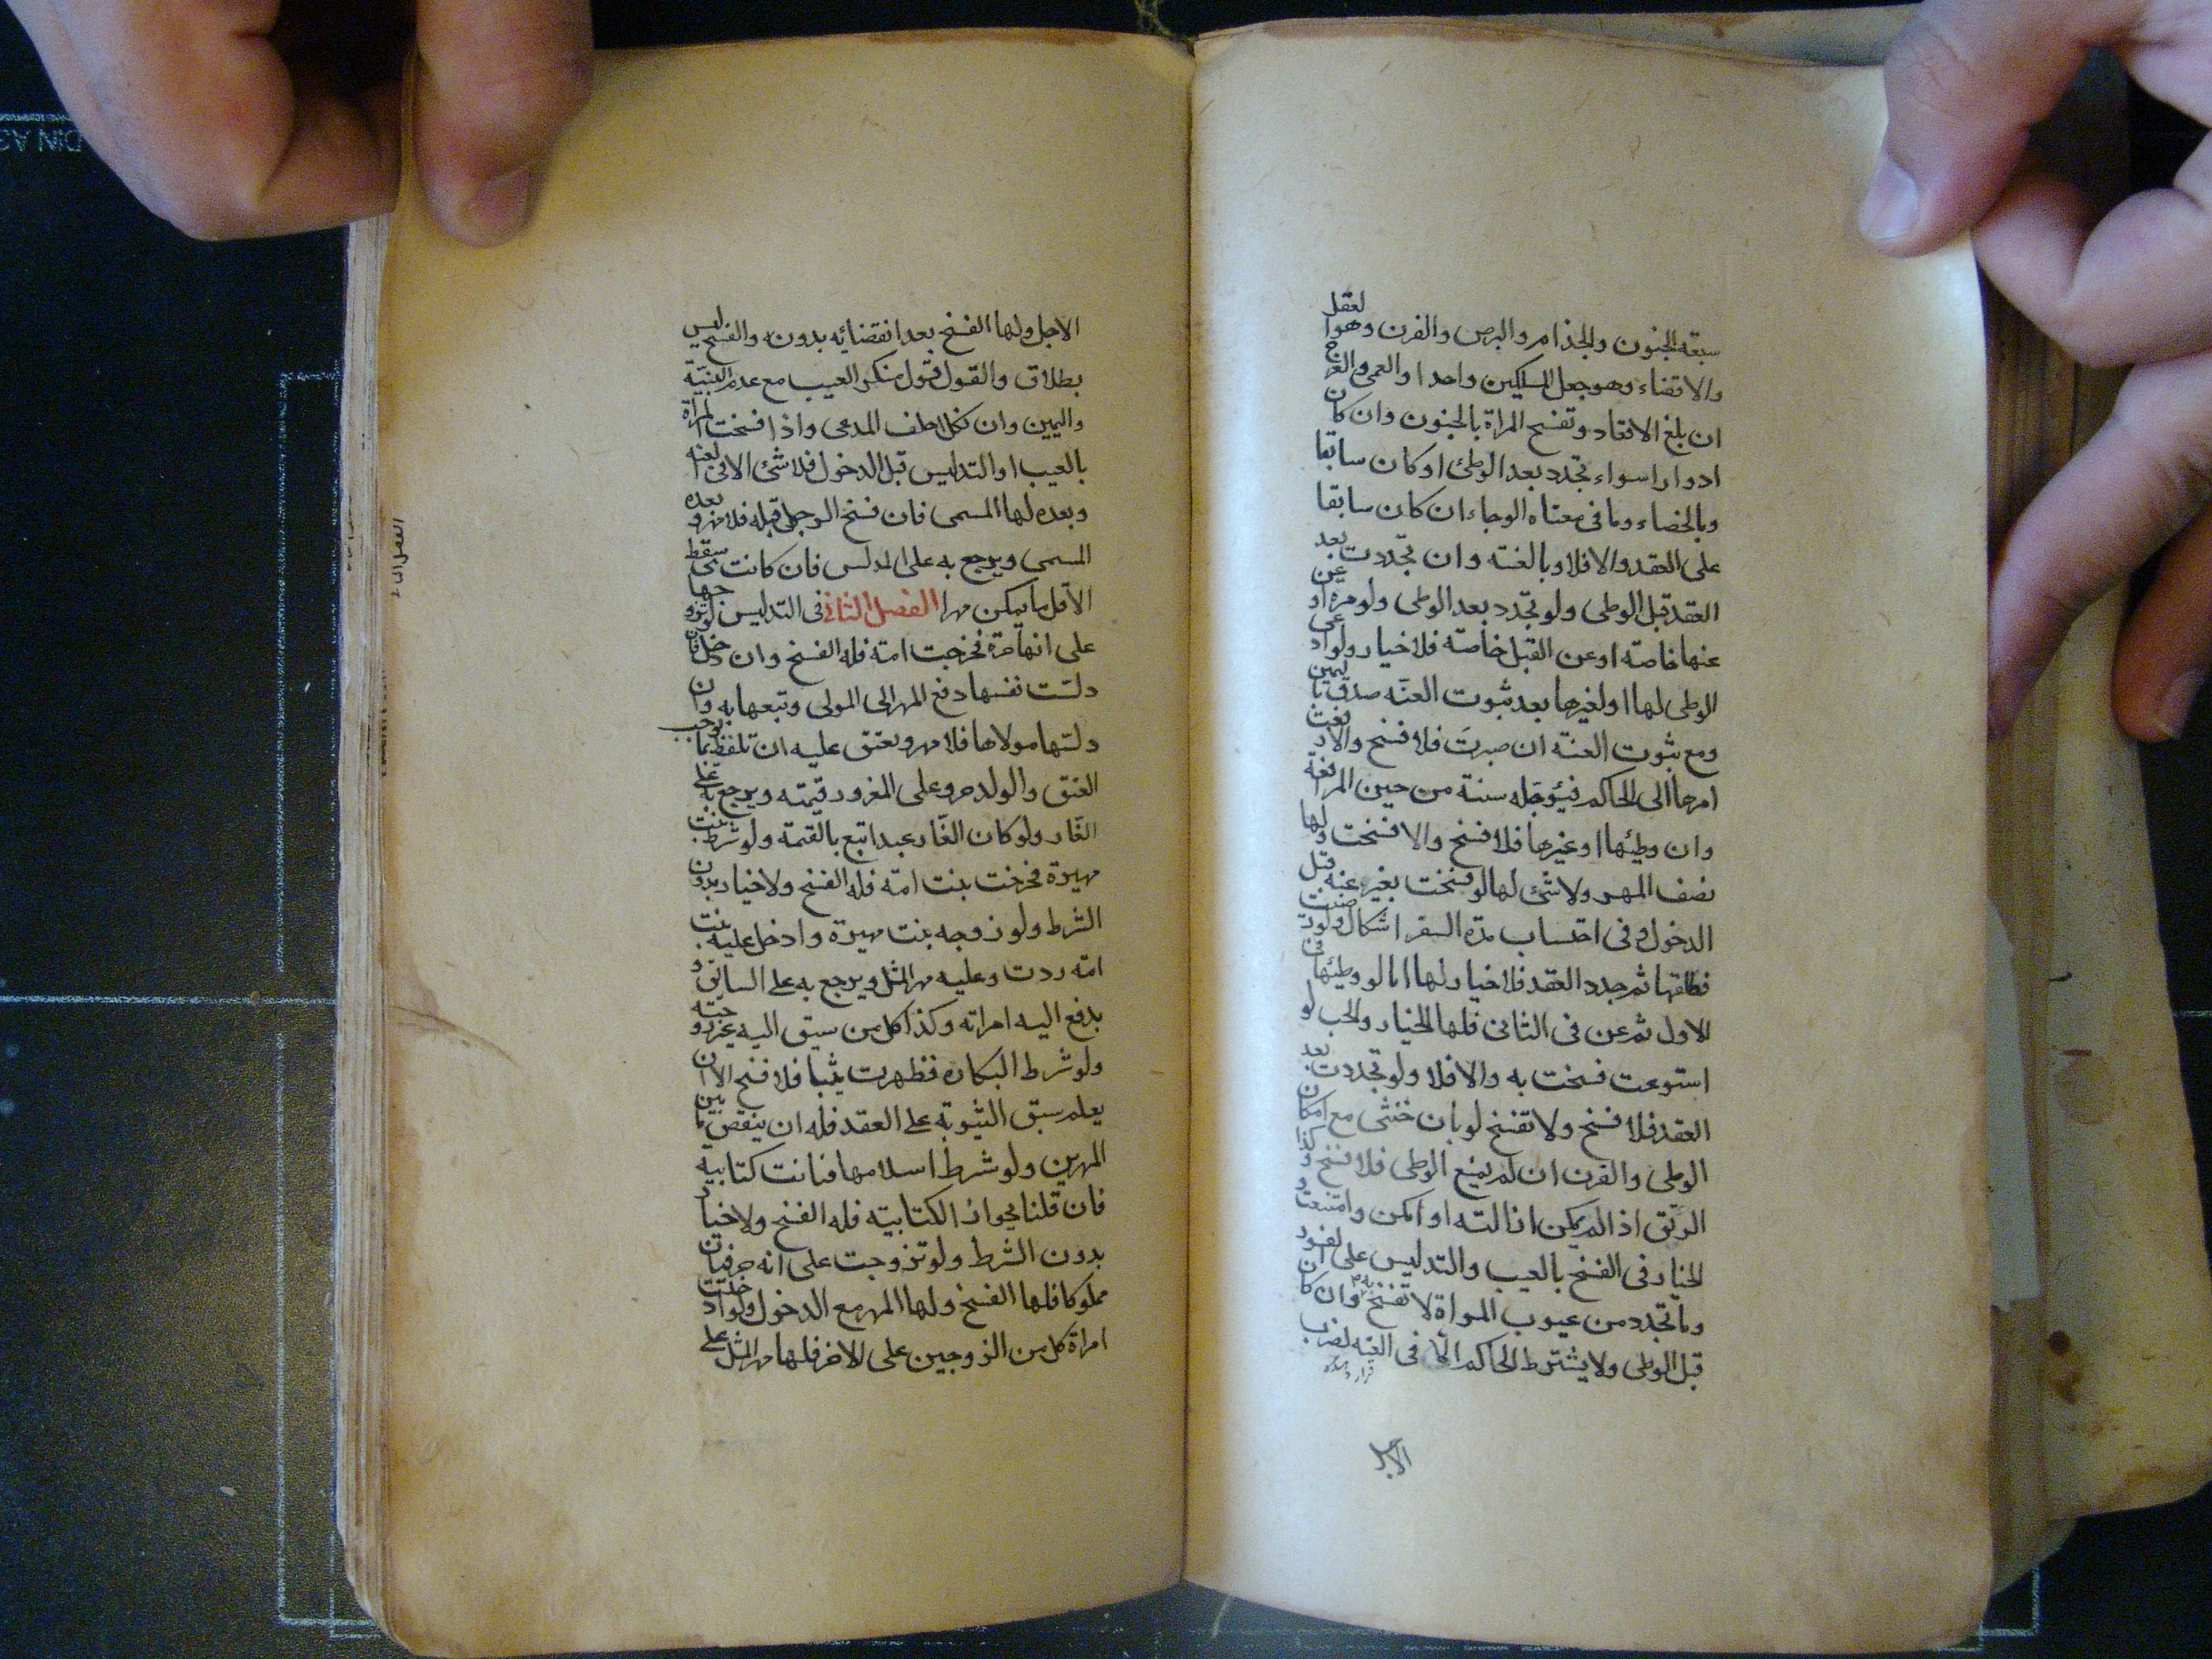 سبعة الجنون والجذام والبرص والقرن وهو العفل
والافضاء وهو جعل المسلكين واحدا والعمى والعرج
ان بلغ الاقعاد وتفسخ المراة بالجنون وان كان
ادوارا سواء تجدد بعد الوطئ او كان سابقا
وبالخصاء وما فى معناه الوجاء ان كان سابقا
على العقد والا فلا وبالعنه وان تجددت بعد
العقد قبل الوطى ولو تجدد بعد الوطى ولو مرة او عن
عنها خاصه او عن القبل خاصه فلا خيار ولو ادعى
الوطى لها او لغيرها بعد ثبوت العنّه صدق باليمين
ومع ثبوت العنة ان صبرت فلا فسخ والا رفعت
امرها الى الحاكم فيؤجله سنة من حين المرافعة
وان وطئها او غيرها فلا فسخ والا فسخت ولها
نصف المهر ولا شئ لها لو فسخت بغير عنه قبل
الدخول وفى احتساب مدة السفر اشكال ولو رضيت
فطلقها ثم جدد العقد فلا خيار لها اما لو وطئها فى
الاول ثم عن فى الثانى فلها الخيار والجب لو
استوعبت فسخت به والا فلا ولو تجددت بعد
العقد فلا فسخ ولا تفسخ لو بان خنثى مع امكان
الوطى والقرن ان لم يمنع الوطى فلا فسخ وكذا
الرتق اذا لم يمكن ازالته او امكن وامتنعت و
الخيار فى الفسخ بالعيب والتدليس على الفور
وما تجدد من عيوب المراة لا تفسخ به وان كان
قبل الوطى ولا يشترط الحاكم الّا فى العنه لضرب
الاجل
الاجل ولها الفسخ بعد انقضائه بدونه والفسخ ليس
بطلاق والقول قول منكر العيب مع عدم البينة
واليمين وان نكل احلف المدعى واذا فسخت المراة
بالعيب او التدليس قبل الدخول فلا شئ الا فى العنه
وبعده لها المسمى فان فسخ الرجل قبله فلا مهر وبعده
المسمى ويرجع به على المدلس فان كانت هى سقط
الا اقل ما يمكن مهرا الفصل الثانى فى التدليس لو تزوجها
على انها حرة فخرجت امة فله الفسخ وان دخل فان
دلّست نفسها دفع المهر الى المولى وتبعها به وان
دلسها مولاها فلا مهر ويعتق عليه ان تلفظ بما يوجب
العتق والولد حر وعلى المغرور قيمته ويرجع به على
الغّار ولو كان الغّار عبدا اتبع بالقيمة ولو شرط بنت
مهيرة فخرجت بنت امة فله الفسخ ولا خيار بدون
الشرط ولو زوجه بنت مهيرة وادخل عليه بنت
امة ردت وعليه مهر المثل ويرجع به على السائق و
يدفع اليه امراته وكذا كل من سيق اليه غير زوجته
ولو شرط البكارة فظهرت ثيبا فلا فسخ الا ان
يعلم سبق الثيوبة على العقد فله ان ينقص ما بين
المهرين ولو شرط اسلامها فبانت كتابية
فان قلنا بجواز الكتابية فله الفسخ ولا خيار
بدون الشرط ولو تزوجت على انه حر فبان
مملوكا فلها الفسخ ولها المهر مع الدخول ولو ادخلت
امراة كل من الزوجين على الاخر فلها مهر المثل على